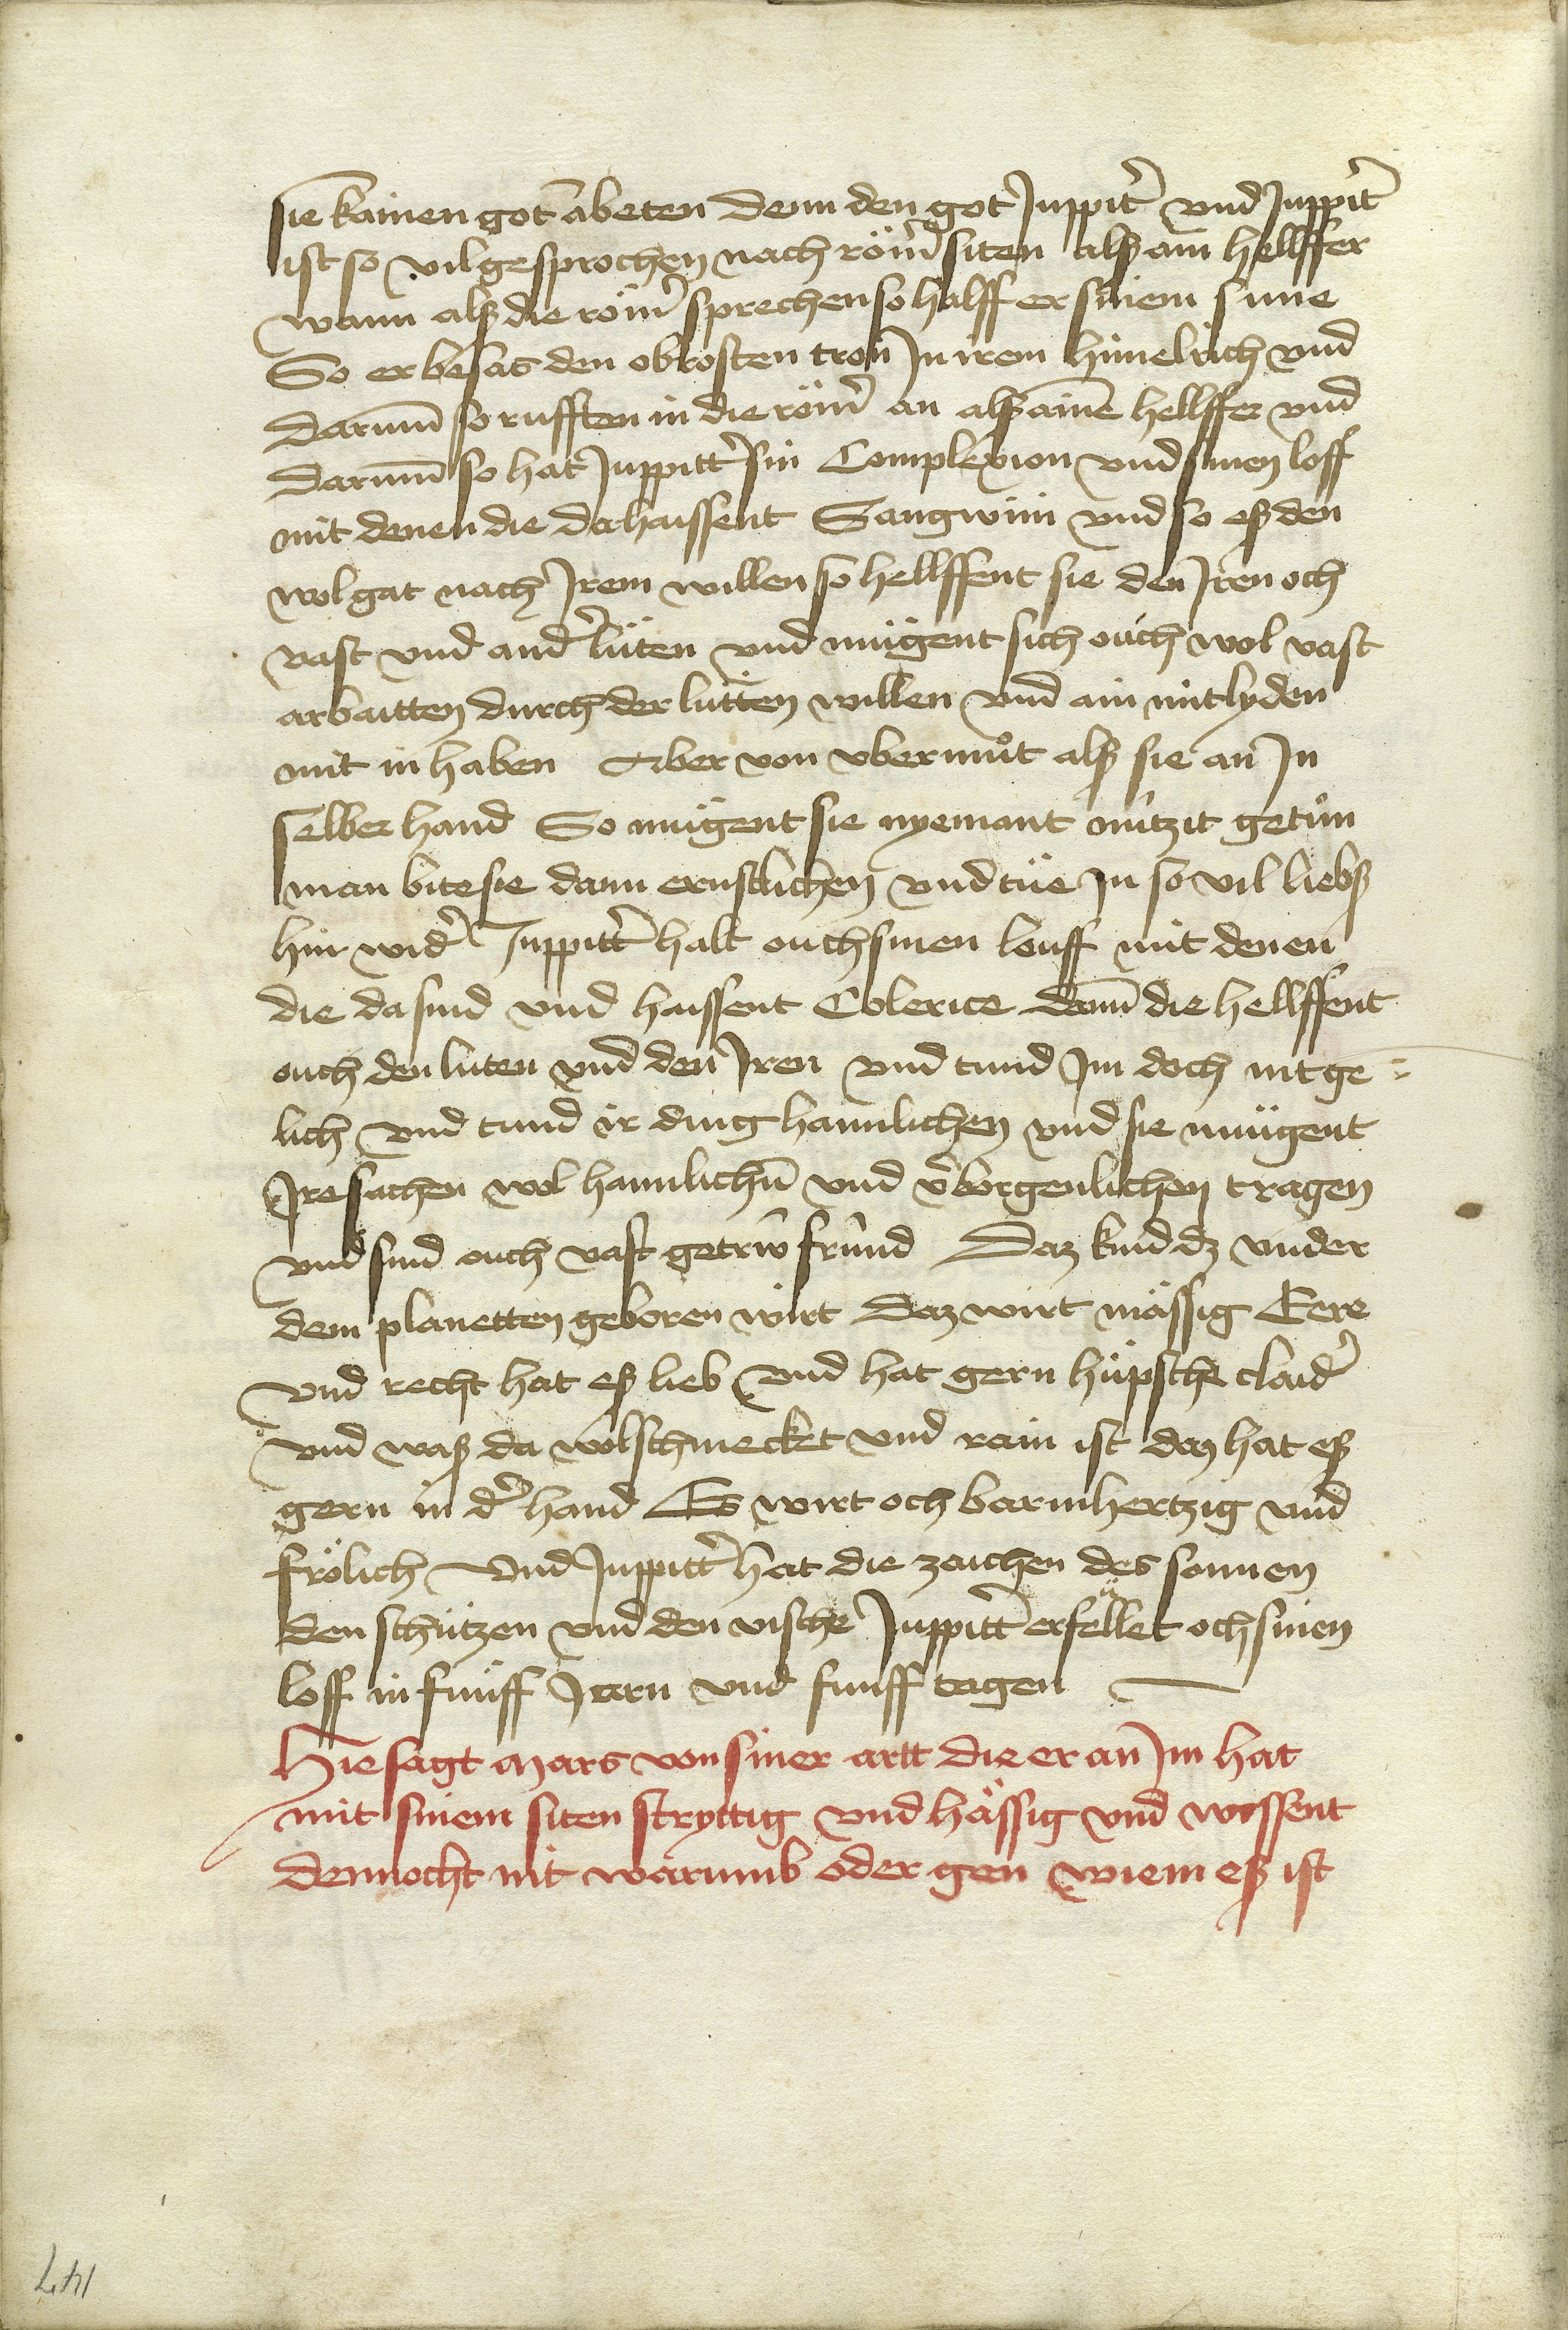 sie kainen got anbeten denn den got Juppitter und Juppitter
ist so vil gesprochen nach römer siten alß ain hellffer
wann alß die römer sprechen so halff er sinem sune
So er besas den obrosten tron Jn irem himelrich und
darumm so rufften in die römer an alß ainen hellffer und
darumm so hat Juppitter sin Complexion und sinen loff
mit denen die da haissent Sangwini und so eß den
wol gat nach Jrem willen so hellffent sie den Jren och
vast und ander lüten und mügent sich ouch wol vast
arbaitten durch der lütten willen und ain mitlyden
mit in haben Aber von vbermůt alß sie an Jn
selber hand So mügent sie nyemant nützit getůn
man bite sie dann ernstlichen und tüe Jn so vil liebß
hin wider Juppitter halt ouch sinen louff mit denen
die da sind und haissent Colerice dann die hellffent
ouch den luten und den Jren und tund Jm doch nit ge-
lich und tund ir ding haimlichen und sie mügent
Jre sachen wol haimlichen und verborgenlichen tragen
und sind ouch vast getrüw fründ Daz kind dz under
dem planetten geboren wirt daz wirt mässig Eere
und recht hat eß lieb und hat gern hüpsche claider
und waß da wolschmecket und rain ist daz hat eß
gern in der hand Es wirt och barmhertzig und
frölich Und Juppitter hat die zaichen des sonnen
den schützen und den vische Juppitter erfüllet och sinen
loff in fünff Jarn und funff tagen
Hie sagt Mars von siner artt die er an Jm hat
mit sinem siten stryttig und hässig und wissent
dennocht nit warumb oder gen wiem eß ist
147